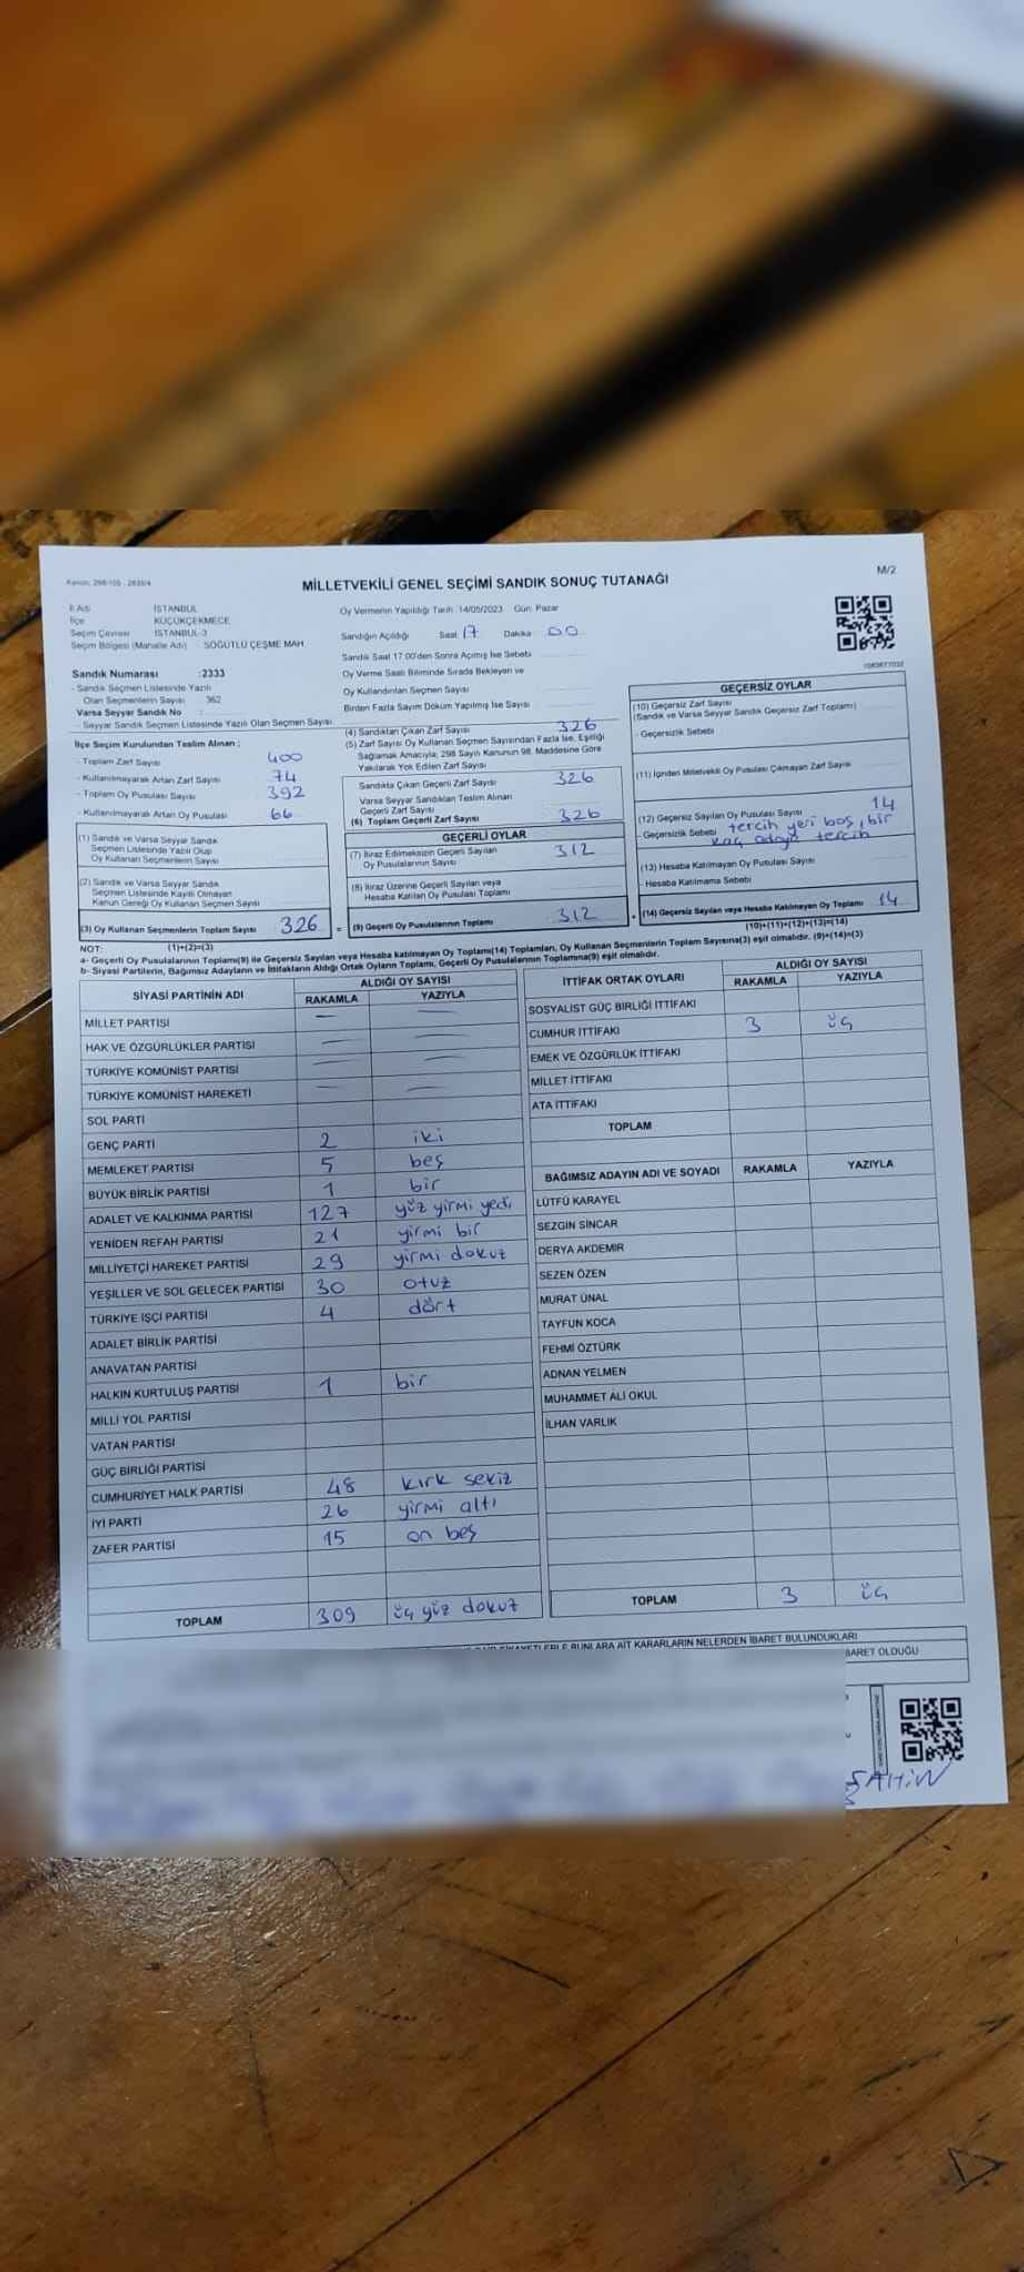 MİLLETVEKİLİ GENEL SEÇİMİ SANDIK SONUÇ TUTANAĞI
M/2
İl Adı İSTANBUL
İlçe KÜÇÜKÇEKMECE
Seçim Çevresi İSTANBUL-3
Seçim Bölgesi (Mahalle Adı) : SÖĞÜTLÜ ÇEŞME MAH
Sandık Numarası :2333
- Sandık Seçmen Listesinde Yazılı
Olan Seçmenlerin Sayısı 362
Varsa Seyyar Sandık No :
- Seyyar Sandık Seçmen Listesinde Yazılı Olan Seçmen Sayısı
Oy Vermenin Yapıldığı Tarih :14/05/2023 Gün: Pazar
Sandığın Açıldığı Saat 17 Dakika 00
Sandık Saat 17.00'den Sonra Açılmış İse Sebebi
Oy Verme Saati Bitiminde Sırada Bekleyen ve
Oy Kullandırılan Seçmen Sayısı
Birden Fazla Sayım Döküm Yapılmış İse Sayısı
İlçe Seçim Kurulundan Teslim Alınan ;
- Toplam Zarf Sayısı 400
- Kullanılmayarak Artan Zarf Sayısı 74
- Toplam Oy Pusulası Sayısı 392
- Kullanılmayarak Artan Oy Pusulası 66
(1) Sandık ve Varsa Seyyar Sandık
Seçmen Listesinde Yazılı Olup
Oy Kullanan Seçmenlerin Sayısı
(2) Sandık ve Varsa Seyyar Sandık
Seçmen Listesinde Kayıtlı Olmayan
Kanun Gereği Oy Kullanan Seçmen Sayısı
(3) Oy Kullanan Seçmenlerin Toplam Sayısı 326 =
(4) Sandıktan Çıkan Zarf Sayısı 326
(5) Zarf Sayısı Oy Kullanan Seçmen Sayısından Fazla İse, Eşitliği
Sağlamak Amacıyla; 298 Sayılı Kanunun 98. Maddesine Göre
Yakılarak Yok Edilen Zarf Sayısı
Sandıkta Çıkan Geçerli Zarf Sayısı 326
Varsa Seyyar Sandıktan Teslim Alınan
Geçerli Zarf Sayısı
(6) Toplam Geçerli Zarf Sayısı 326
GEÇERLİ OYLAR
(7) İtiraz Edilmeksizin Geçerli Sayılan
Oy Pusulalarının Sayısı 312
(8) İtiraz Üzerine Geçerli Sayılan veya
Hesaba Katılan Oy Pusulası Toplamı
(9) Geçerli Oy Pusulalarının Toplamı 312 +
GEÇERSİZ OYLAR
(10) Geçersiz Zarf Sayısı
(Sandık ve Varsa Seyyar Sandık Geçersiz Zarf Toplamı)
- Geçersizlik Sebebi
(11) İçinden Milletvekili Oy Pusulası Çıkmayan Zarf Sayısı
(12) Geçersiz Sayılan Oy Pusulası Sayısı 14
- Geçersizlik Sebebi tercih yeri boş, bir
kaç adaya tercih
(13) Hesaba Katılmayan Oy Pusulası Sayısı
Hesaba Katılmama Sebebi
(14) Geçersiz Sayılan veya Hesaba Katılmayan Oy Toplamı 14
NOT: (1)+(2)=(3)
(10)+(11)+(12)+(13)=(14)
a- Geçerli Oy Pusulalarının Toplamı(9) ile Geçersiz Sayılan veya Hesaba katılmayan Oy Toplamı(14) Toplamları, Oy Kullanan Seçmenlerin Toplam Sayısına(3) eşit olmalıdır. (9)+(14)=(3)
b- Siyasi Partilerin, Bağımsız Adayların ve İttifakların Aldığı Ortak Oyların Toplamı, Geçerli Oy Pusulalarının Toplamına(9) eşit olmalıdır.
SİYASİ PARTİNİN ADI ALDIĞI OY SAYISI
RAKAMLA YAZIYLA
MİLLET PARTİSİ — —
HAK VE ÖZGÜRLÜKLER PARTİSİ — —
TÜRKİYE KOMÜNİST PARTİSİ — —
TÜRKİYE KOMÜNİST HAREKETİ — —
SOL PARTİ
GENÇ PARTİ 2 iki
MEMLEKET PARTİSİ 5 beş
BÜYÜK BİRLİK PARTİSİ 1 bir
ADALET VE KALKINMA PARTİSİ 127 yüz yirmi yedi
YENİDEN REFAH PARTİSİ 21 yirmi bir
MİLLİYETÇİ HAREKET PARTİSİ 29 yirmi dokuz
YEŞİLLER VE SOL GELECEK PARTİSİ 30 otuz
TÜRKİYE İŞÇİ PARTİSİ 4 dört
ADALET BİRLİK PARTİSİ
ANAVATAN PARTİSİ
HALKIN KURTULUŞ PARTİSİ 1 bir
MİLLİ YOL PARTİSİ
VATAN PARTİSİ
GÜÇ BİRLİĞİ PARTİSİ
CUMHURİYET HALK PARTİSİ 48 kırk sekiz
İYİ PARTİ 26 yirmi altı
ZAFER PARTİSİ 15 on beş
TOPLAM 309 üç yüz dokuz
İTTİFAK ORTAK OYLARI ALDIĞI OY SAYISI
RAKAMLA YAZIYLA
SOSYALİST GÜÇ BİRLİĞİ İTTİFAKI
CUMHUR İTTİFAKI 3 üç
EMEK VE ÖZGÜRLÜK İTTİFAKI
MİLLET İTTİFAKI
ATA İTTİFAKI
TOPLAM
BAĞIMSIZ ADAYIN ADI VE SOYADI RAKAMLA YAZIYLA
LÜTFÜ KARAYEL
SEZGİN SİNCAR
DERYA AKDEMİR
SEZEN ÖZEN
MURAT ÜNAL
TAYFUN KOCA
FEHMİ ÖZTÜRK
ADNAN YELMEN
MUHAMMET ALİ OKUL
İLHAN VARLIK
TOPLAM 3 üç
BUNLARA AİT KARARLARIN NELERDEN İBARET BULUNDUKLARI
BARET OLDUĞU
ŞAHİN